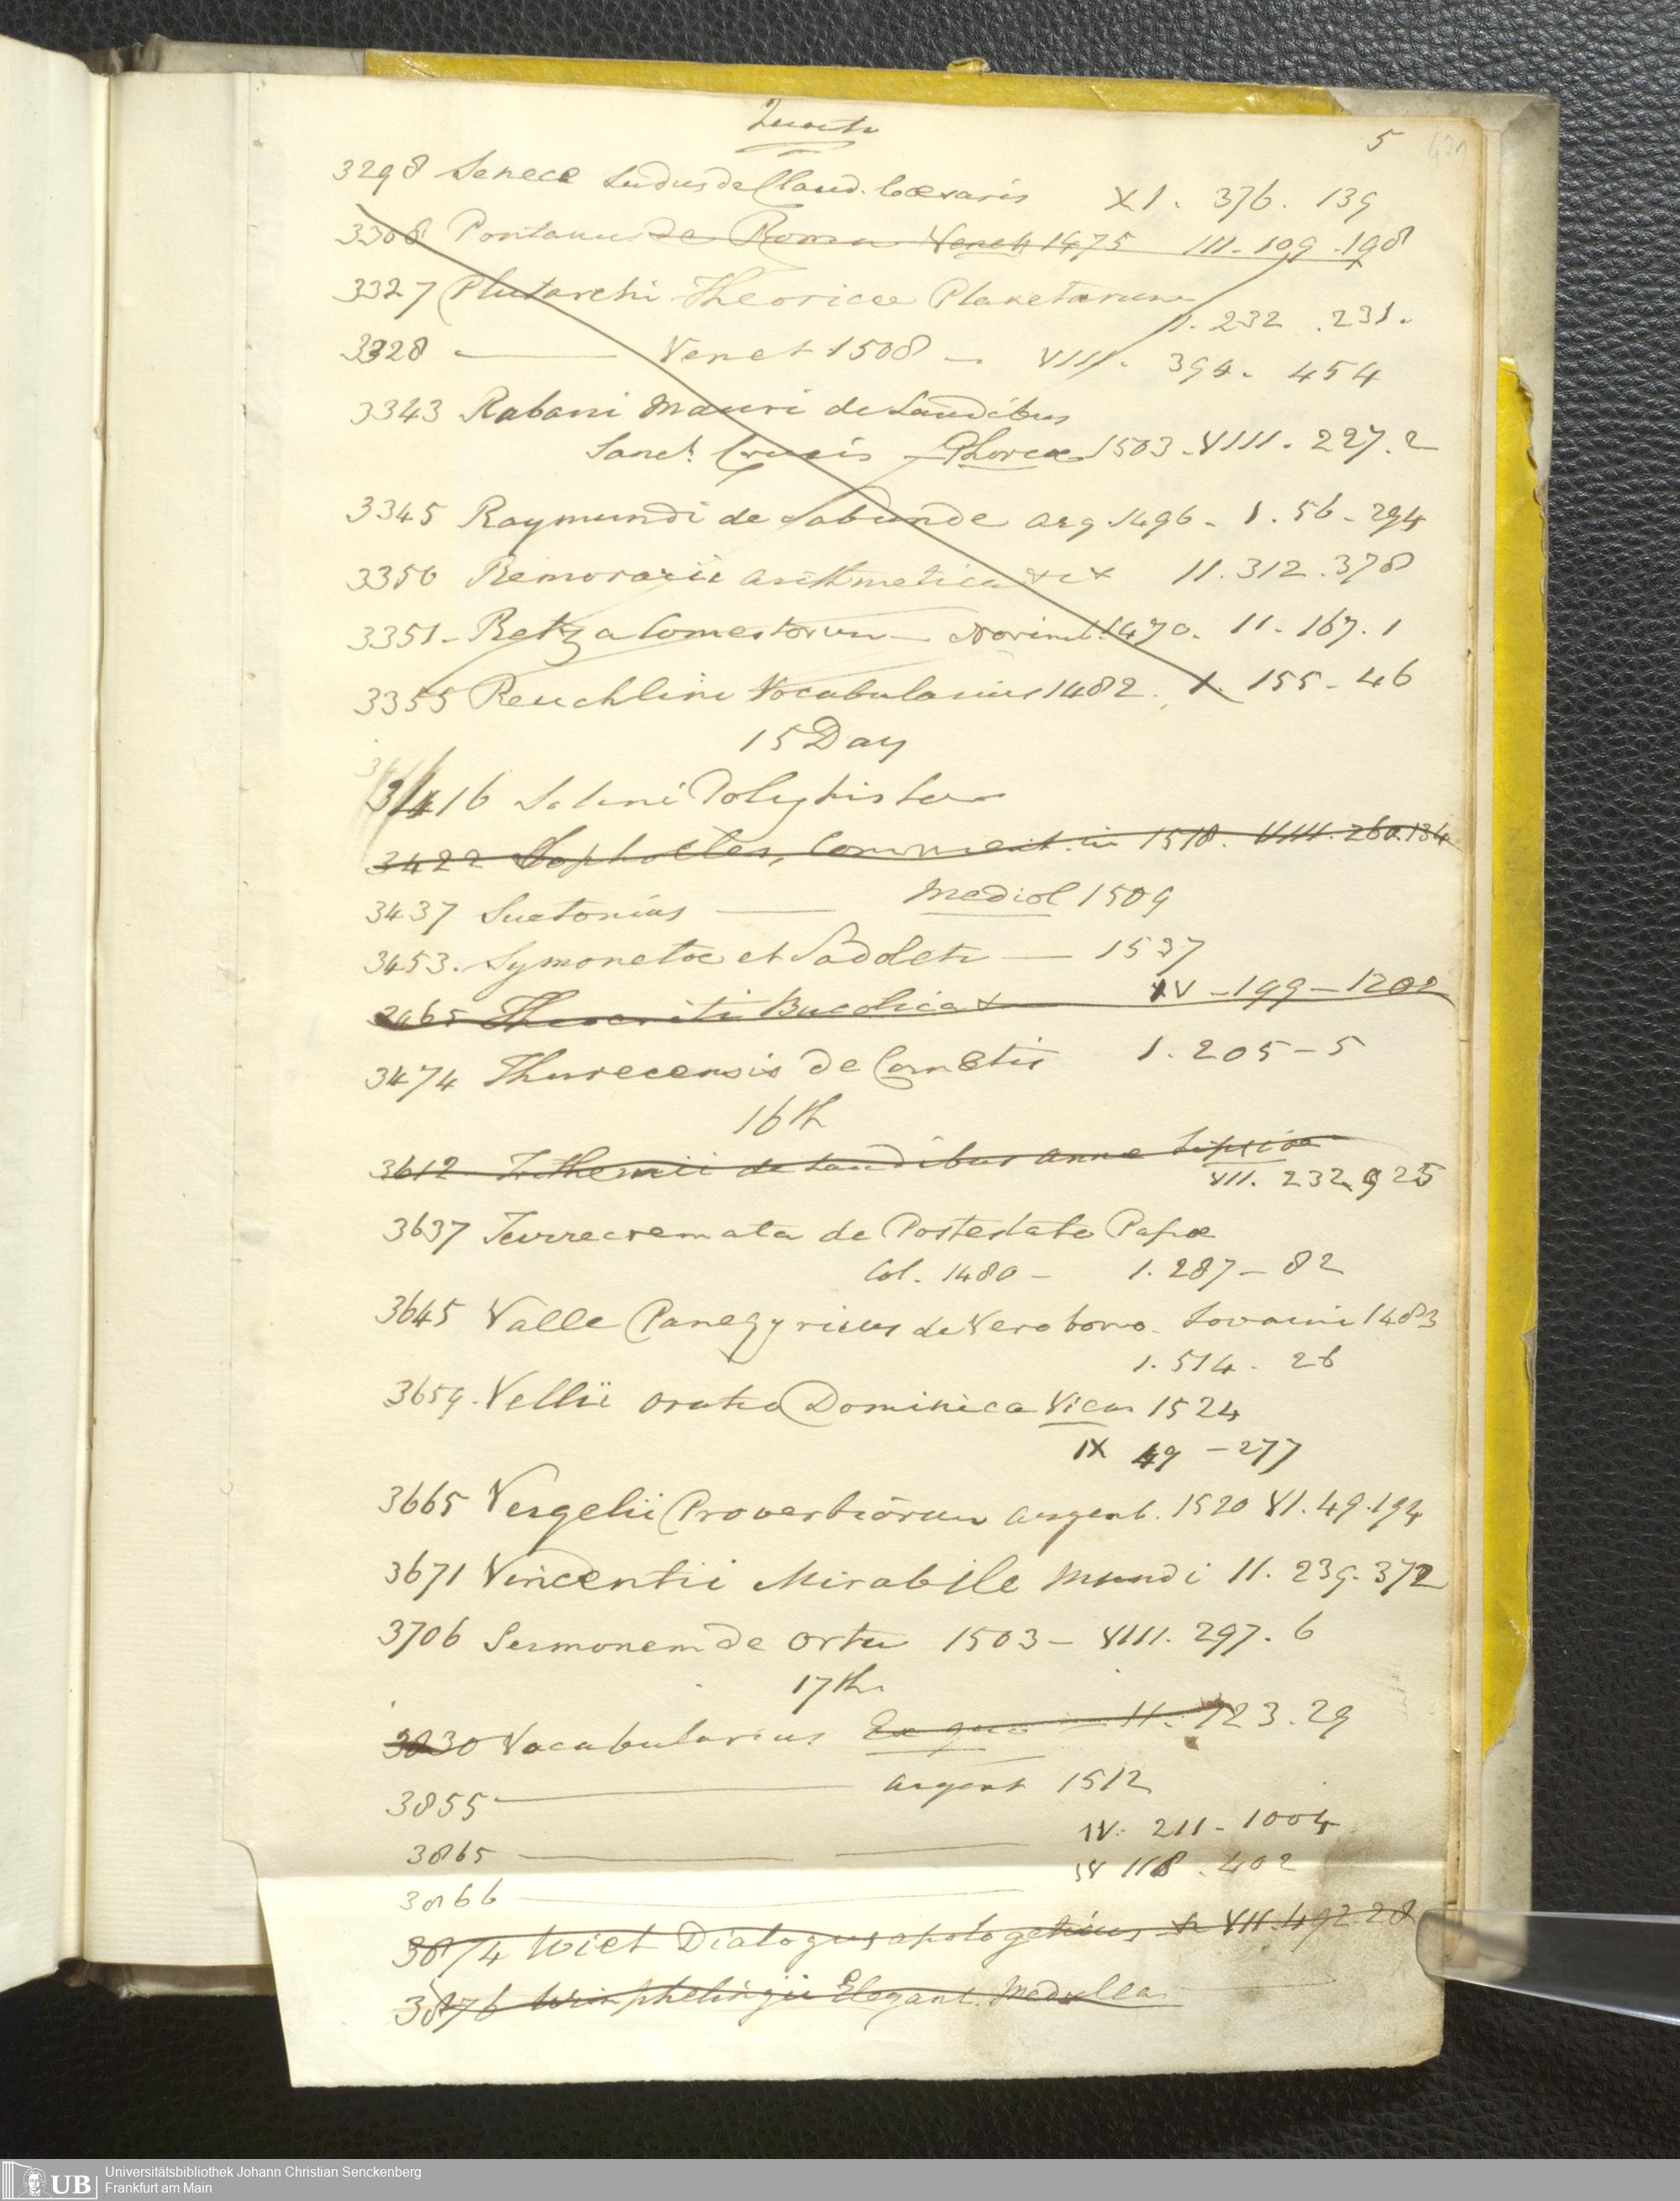 Quarto
5
3298 Senece Ludus de Claud. Cæsaris XI. 376. 139
3308 Pontanus de Roma Venet 1475 III. 109. 198
3327 Plutarchi Theoricæ Planetarum
II. 232. 231.
3328 —— Venet 1508 — VIII. 394. 454
3343 Rabani Mauri de Laudibus
Sanct. Crucis — Phorcæ 1503. VIII. 227. 2
3345 Raymundi de Sabunde Arg. 1496 - I. 56 - 294
3350 Remorarii Arithmetica II. 312. 378
3351 - Retza Comestorum — Norimb. 1470. II. 167. 1
3355 Reuchlini Vocabularius 1482. I. 155 - 46
15 Day
3416 Solini Polyhistor
3422 Sophocles, Comment. in 1518. VIII. 260. 134
3437 Suetonius —— Mediol 1509
3453. Symonetæ et Sadoleti — 1537
3465 Theocriti Bucolica IV - 199 - 1202
3474 Thurecensis de Cometis I. 205 - 5
16th
3612 Trithemii de Laudibus Anne Lipsiæ
VII. 232. 925
3637 Turrecremata de Postestate Papæ
Col. 1480 - I. 287 - 82
3645 Valle Panegyricus de Vero bono. Lovanii 1483
I. 514. 26
3659. Vellii Oratio Dominica Vien 1524
IX 49 - 277
3665 Vergelii Proverbiorum Argent. 1520 VI. 49. 194
3671 Vincentii Mirabile Mundi II. 239. 372
3706 Sermonem de Ortu 1503 - VIII. 297. 6
17th
3830 Vocabularius Ex quo II. 123. 29
3855 —— Argent 1512
3865 —— —— IV. 211 - 1004
3866 —— IV 118. 402
3874 Wiet Dialogus apologeticus VII. 492. 28
3876 Wimphelingii Elegant. Medulla
UB Universitätsbibliothek Johann Christian Senckenberg
Frankfurt am Main